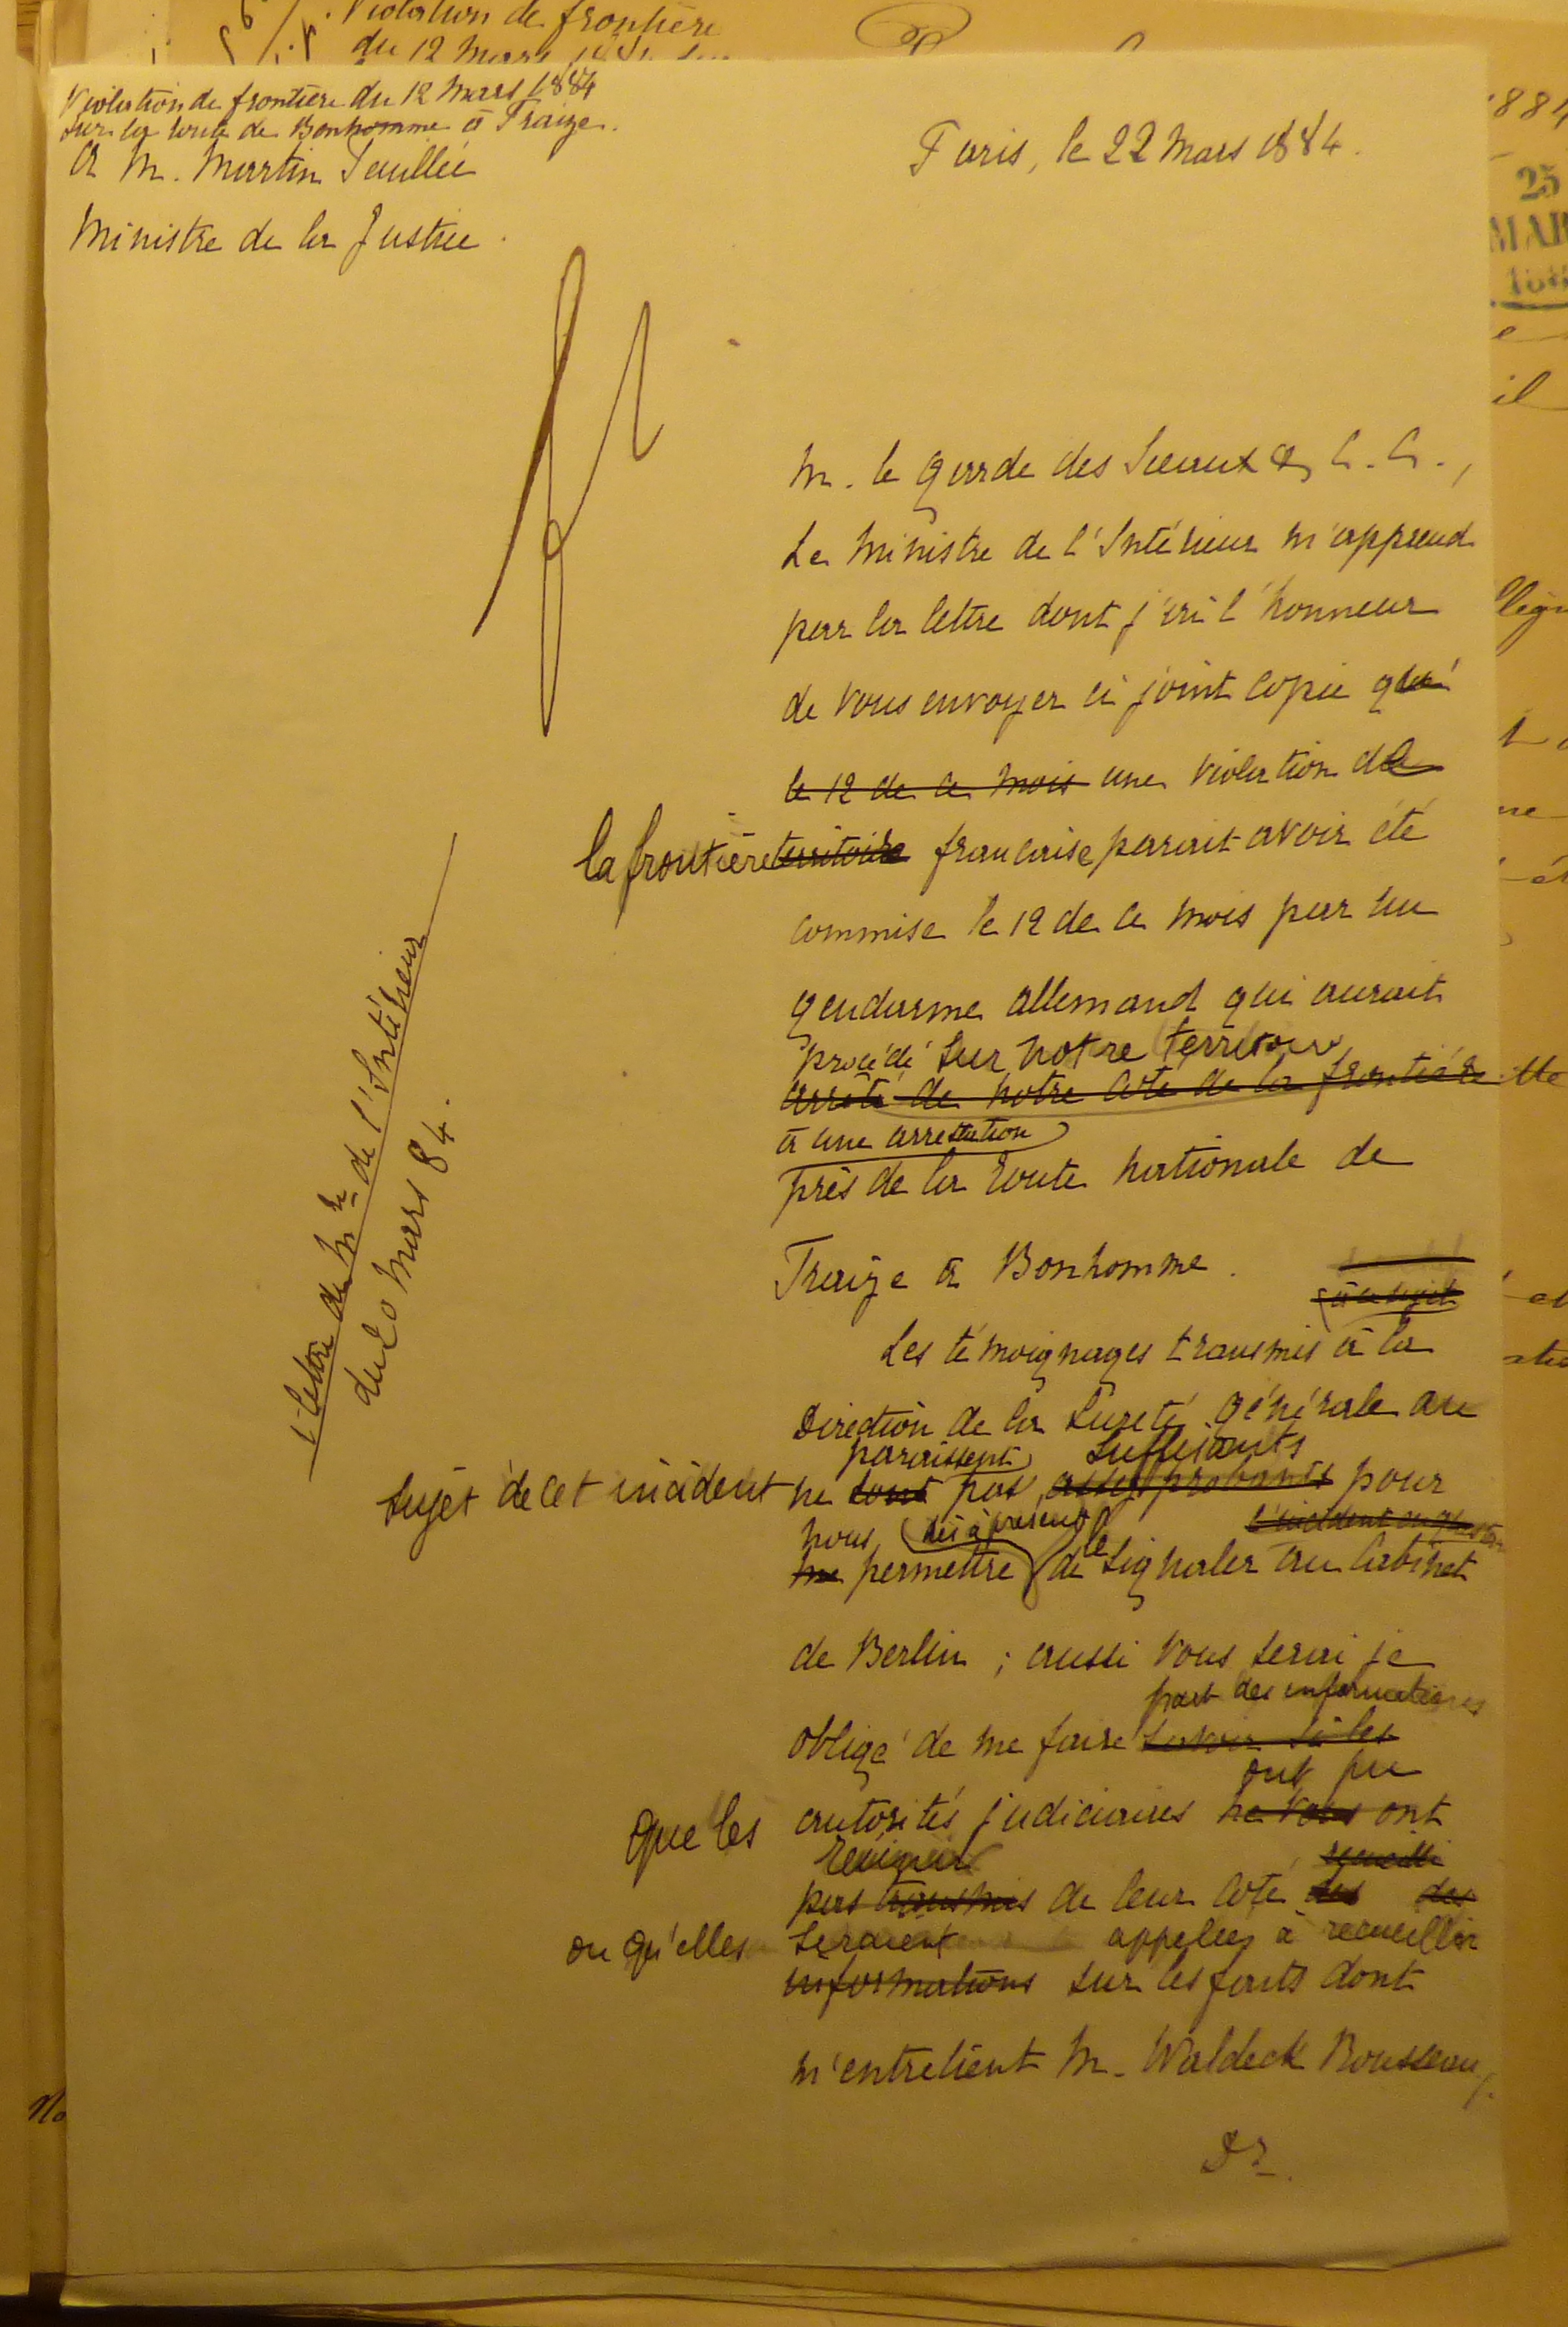 Violation de frontière
du 12 Mars
Violation de frontière du 12 Mars 1884
sur la route de Bonhomme à Fraize.
A M. Martin Feuillée
Ministre de la Justice.
Paris, le 22 Mars 1884.
25
MAR
M. le Garde des Sceaux & C. C.,
Le Ministre de l'Intérieur m'apprend
par la lettre dont j'ai l'honneur
de vous envoyer ci joint copie qu'
le 12 de ce mois une violation de
la frontière territoire française parait avoir été
commise le 12 de ce mois par un
gendarme allemand qui aurait
procédé sur notre territoire
arrêté de notre coté de la frontière
à une arrestation
près de la route nationale de
Fraize à Bonhomme.
à ce sujet
Les témoignages transmis à la
Direction de la Sureté générale au
paraissent suffisants
sujet de cet incident ne sont pas assez probants pour
nous dès à présent l'incident en question
me permettre de le signaler au Cabinet
de Berlin ; aussi vous serai je
part des informations
obligé de me faire savoir si les
ont pu
que les autorités judiciaires ne vous ont
recueilli
pas transmis de leur coté des
ou qu'elles seraient appelées à recueillir
informations sur les faits dont
m'entretient M. Waldeck Rousseau.
Lettre du Mre de l'Intérieur
du 20 Mars 84.